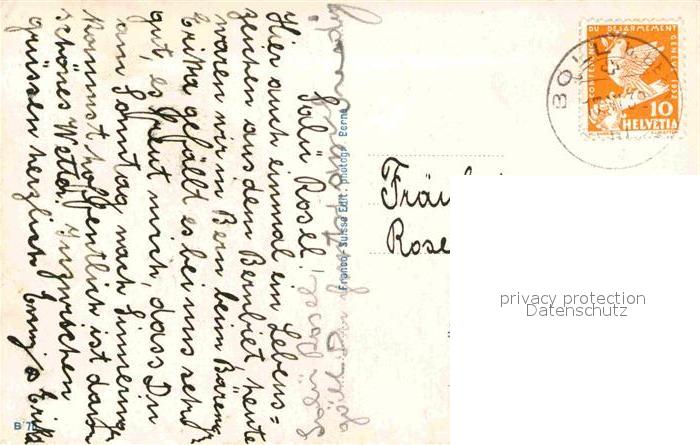 Salü Rosel!
Hier auch einmal ein Lebens=
zeichen aus dem Bernbiet, heute
waren wir in Bern beim Bäreng.
Erika gefällt es bei uns sehr
gut, es freut mich, dass Du
am Sonntag nach
kommst hoffentlich ist dann
schönes Wetter. Inzwischen
grüssen herzlich Emmy & Erika
Franco-Suisse Edit. photogr. Berne
B 7
Fräul
Rose
CONFERENCE DU DESARMEMENT GENEVE 1932
10
HELVETIA
BOLL
privacy protection
Datenschutz